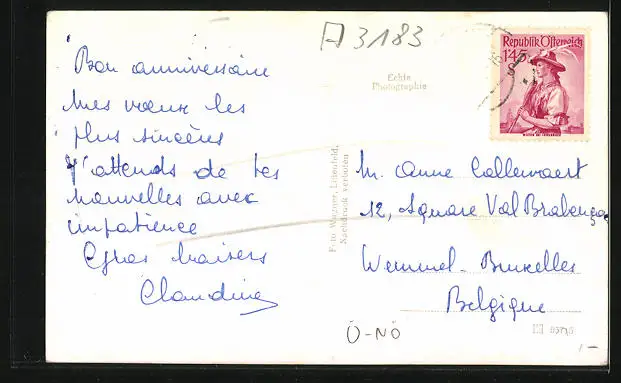 A 3183
Bon anniversaire
Mes vœux les
plus sincères
J'attends de tes
nouvelles avec
impatience
Gros baisers
Claudine
Echte
Photographie
Foto Wagner, Lilienfeld.
Nachdruck verboten
Republik Österreich
1'45
M. Anne Callewaert
12, Square Val Brabançon
Wemmel-Bruxelles
Belgique
Ö-NÖ
1-